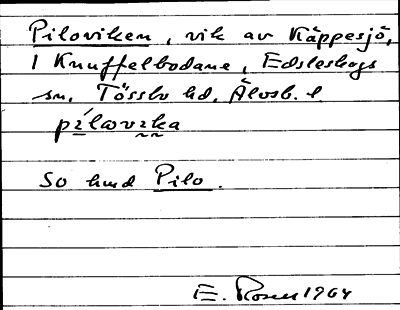 Piloviken, vik av Käppesjö,
i Knuffelbodane, Edsleskogs
sn, Tössbo hd, Älvsb. l.
pílavika
So hmd Pilo.
E. Rosen 1964